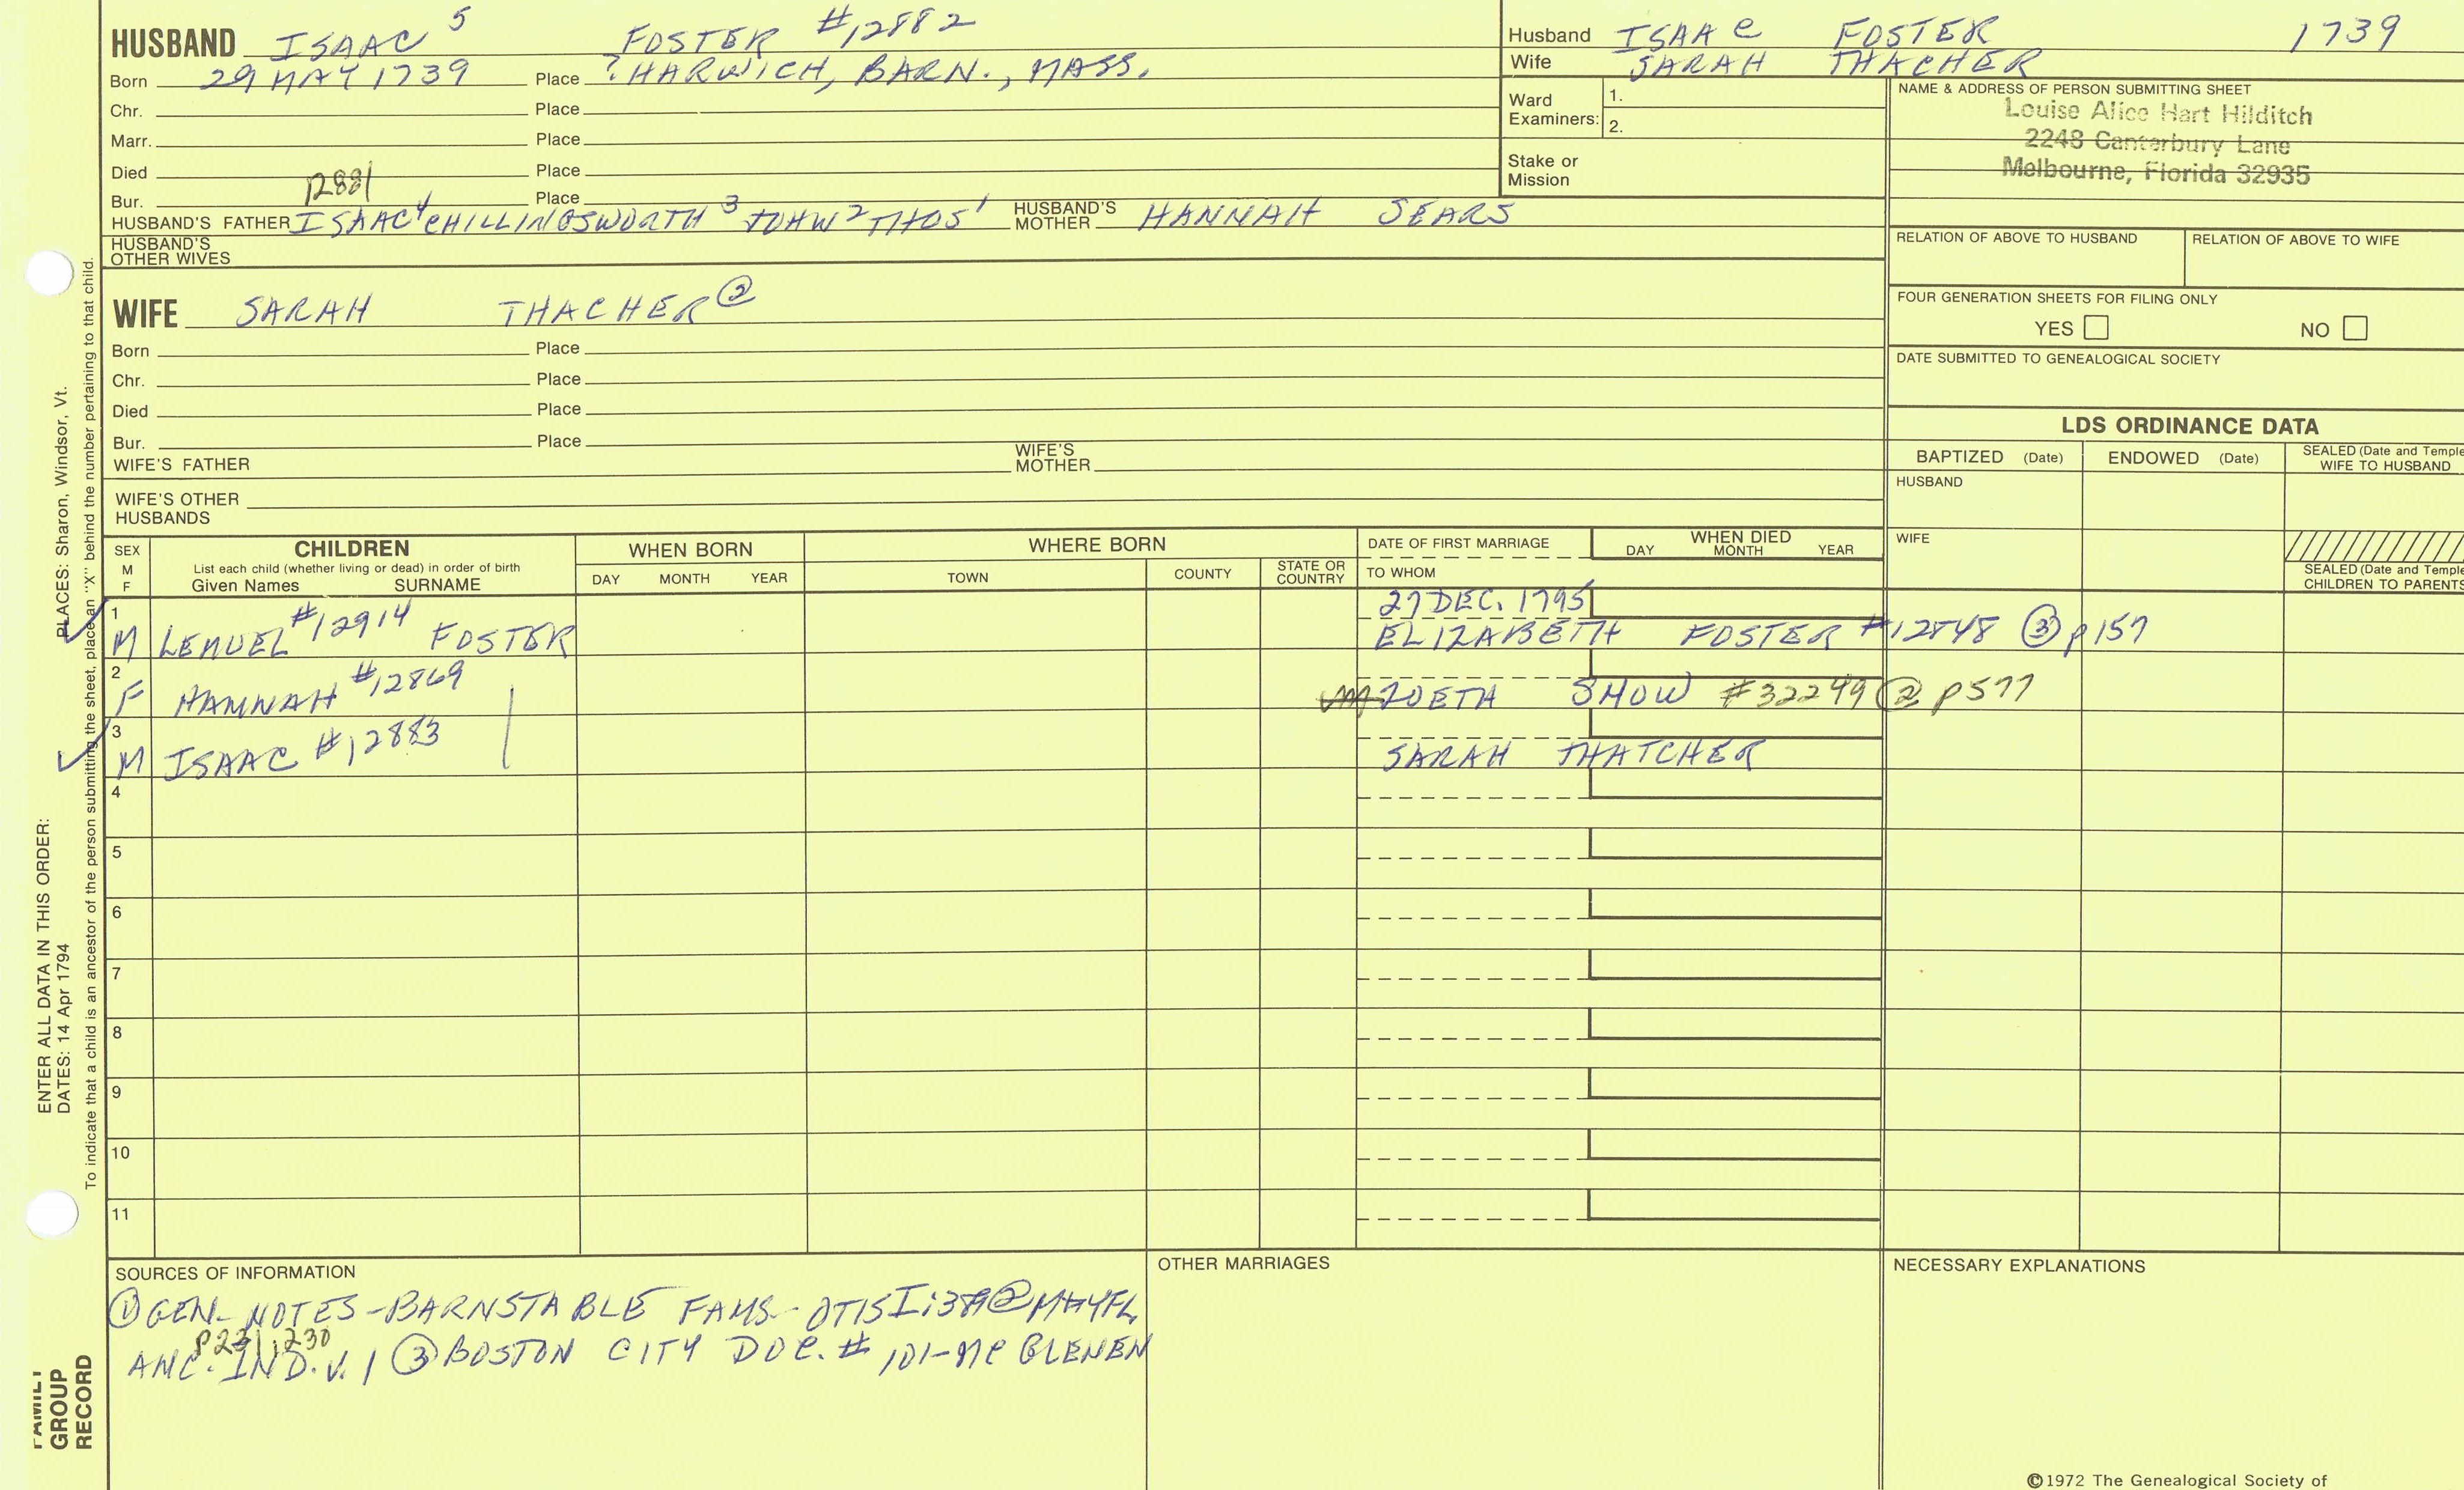 HUSBAND ISAAC 5 FOSTER #12882
Born 29 MAY 1739 Place ? HARWICH, BARN., MASS.
Chr. Place
Marr. Place
Died Place
Bur. 12881 Place
HUSBAND'S FATHER ISAAC 4 CHILLINGSWORTH 3 JOHN 2 THOS 1 HUSBAND'S MOTHER HANNAH SEARS
HUSBAND'S OTHER WIVES
Husband ISAAC FOSTER 1739
Wife SARAH THACHER
Ward Examiners: 1.
2.
Stake or Mission
NAME & ADDRESS OF PERSON SUBMITTING SHEET
Louise Alice Hart Hilditch
2248 Canterbury Lane
Melbourne, Florida 32935
RELATION OF ABOVE TO HUSBAND RELATION OF ABOVE TO WIFE
FOUR GENERATION SHEETS FOR FILING ONLY
YES NO
DATE SUBMITTED TO GENEALOGICAL SOCIETY
WIFE SARAH THACHER ②
Born Place
Chr. Place
Died Place
Bur. Place
WIFE'S FATHER WIFE'S MOTHER
WIFE'S OTHER HUSBANDS
LDS ORDINANCE DATA
BAPTIZED (Date) ENDOWED (Date) SEALED (Date and Temple
WIFE TO HUSBAND
HUSBAND
WIFE
SEALED (Date and Temple
CHILDREN TO PARENTS
SEX M F CHILDREN
List each child (whether living or dead) in order of birth
Given Names SURNAME
WHEN BORN
DAY MONTH YEAR
WHERE BORN
TOWN COUNTY STATE OR COUNTRY
DATE OF FIRST MARRIAGE
TO WHOM
WHEN DIED
DAY MONTH YEAR
1 27 DEC. 1795
M LEMUEL #12914 FOSTER ELIZABETH FOSTER #12848 ③ p157
2
F HANNAH #12869 ZOETH SHOW #32249 ② p577
3
M ISAAC #12883 SARAH THATCHER
4
5
6
7
8
9
10
11
SOURCES OF INFORMATION
① GEN. NOTES-BARNSTABLE FAMS-OTIS
P231;230
ANC. IND. V. 1 ③ BOSTON CITY DOC. # 101-MC GLENEN
OTHER MARRIAGES
NECESSARY EXPLANATIONS
©1972 The Genealogical Society of
ENTER ALL DATA IN THIS ORDER:
DATES: 14 Apr 1794 PLACES: Sharon, Windsor, Vt.
To indicate that a child is an ancestor of the person submitting the sheet, place an "X" behind the number pertaining to that child.
FAMILY
GROUP
RECORD